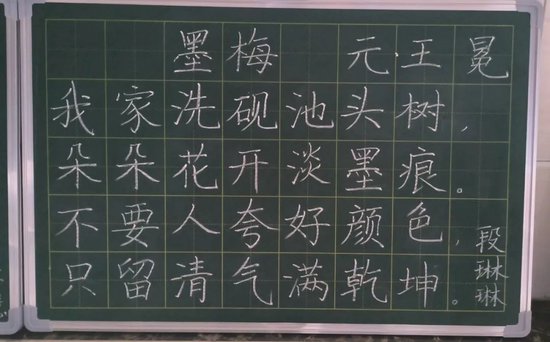 墨梅 元·王冕
我家洗砚池头树，
朵朵花开淡墨痕。
不要人夸好颜色，
只留清气满乾坤。
段琳琳